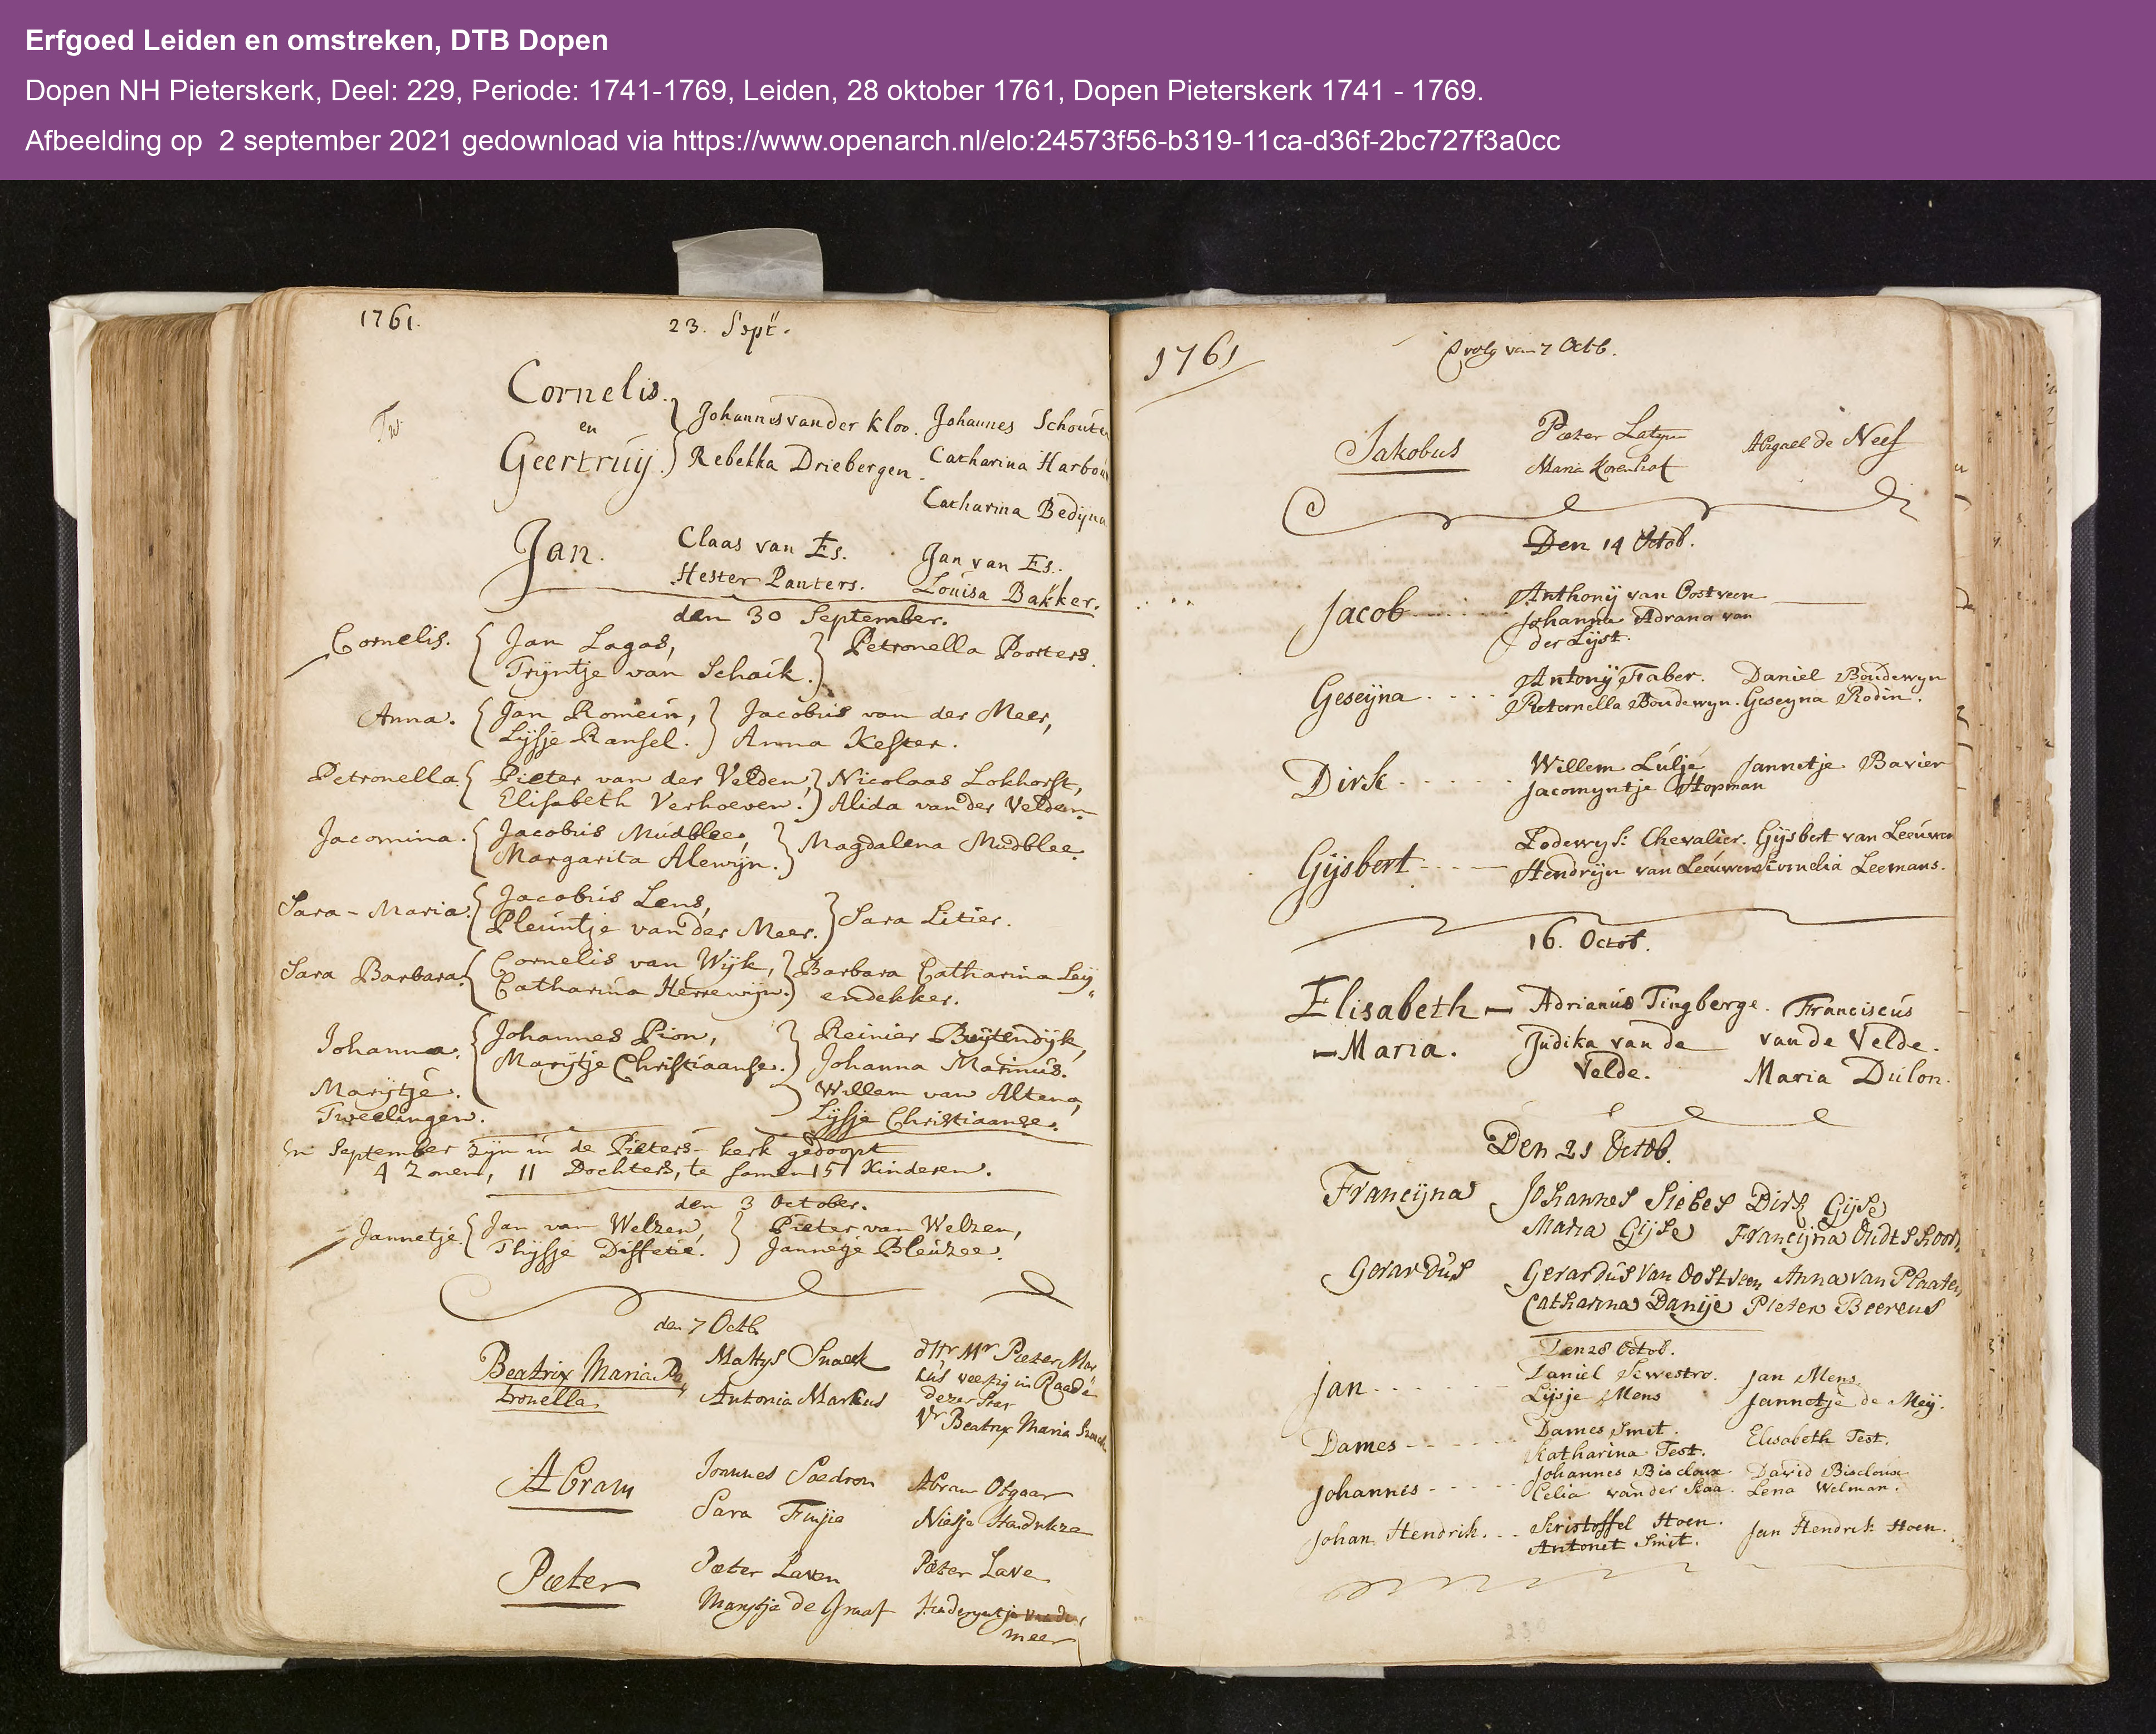 Erfgoed Leiden en omstreken, DTB Dopen
Dopen NH Pieterskerk, Deel: 229, Periode: 1741-1769, Leiden, 28 oktober 1761, Dopen Pieterskerk 1741 - 1769.
Afbeelding op 2 september 2021 gedownload via https://www.openarch.nl/elo:24573f56-b319-11ca-d36f-2bc727f3a0cc
1761. 23. Sept.
Cornelis.
Johannes van der Kloo. Johannes Schoute
Tw. en
Geertruij. Rebekka Driebergen. Catharina Harbou
Catharina Bedijna
Jan. Claas van Es. Jan van Es.
Hester Pauters. Louisa Bakker.
den 30 September.
Cornelis. { Jan Lagas, } Petronella Poorters.
Trijntje van Schaik.
Anna. { Jan Romein, } Jacobus van der Meer,
Lijsje Ransel. Anna Kester.
Petronella { Pieter van der Velden, } Nicolaas Lokhorst,
Elisabeth Verhoeven. Alida van der Velden.
Jacomina. { Jacobus Mudblee, } Magdalena Mudblee.
Margarita Alewijn.
Sara-Maria. { Jacobus Lens, } Sara Litier.
Pleuntje van der Meer.
Sara Barbara. { Cornelis van Wijk, } Barbara Catharina Leij„
Catharina Herrewijn. endekker.
Johanna. { Johannes Pion, } Reinier Buijtendijk,
Marijtje Christiaanse. Johanna Marinus.
Marijtje. Willem van Altena,
Tweelingen. Lijsje Christiaanse.
In September zijn in de Pieters-kerk gedoopt
4 Zonen, 11 Dochters, te samen 15 Kinderen.
den 3 October.
Jannetje. { Jan van Welzen, } Pieter van Welzen,
Thijsje Diffetie. Jannetje Bleuzee.
den 7 Octb
Beatrix Maria Pe„ Mattys Snaek dHr Mr Pieter Mar
tronella Antonia Markus kus veertig in Raade
dezer Stat
Vr Beatrix Maria Snaek
Abram Joannes Abram Otgaar
Sara
Pieter Pieter Laven Pieter Lave
Marijtje de Graaf
meer
1761 vervolg van 7 Octb.
Jakobus Pieter Latyn Abigael de Neef
Maria Korenhof
Den 14 Octob.
Jacob Anthonij van Oostveen
Johanna Adrana van
der Lijst.
Geseijna Antonij Faber. Daniel Boudewyn
Peternella Boudewyn. Geseyna Rodin.
Dirk Willem Lulje Jannetje Bavier
Jacomyntje Hopman
Gijsbert Lodewyk: Chevalier. Gijsbert van Leeuwen
Hendrijn van Leeuwen Cornelia Leemans.
16. Octob.
Elisabeth Adrianus Tingberge. Franciscus
-Maria. Judika van de van de Velde.
Velde. Maria Dulon.
Den 21 Octob.
Francijna Johannes Siebes Dirk Gijse
Maria Gijse Francijna Oudtshoorn
Gerardus Gerardus van Oostveen Anna van Plaaten
Catharina Danije Pieter Beereus
Den 28 Octob.
Jan Daniel Sewestro. Jan Mens.
Lijsje Mens Jannetje de Meij.
Dames Dames Smit. Elisabeth Test.
Katharina Test.
Johannes Johannes Biscloux. David Biscloux
Celia van der Kaa. Lena Welman.
Johan Hendrik. Kristoffel Hoen. Jan Hendrik Hoen.
Antonet Smit.
230